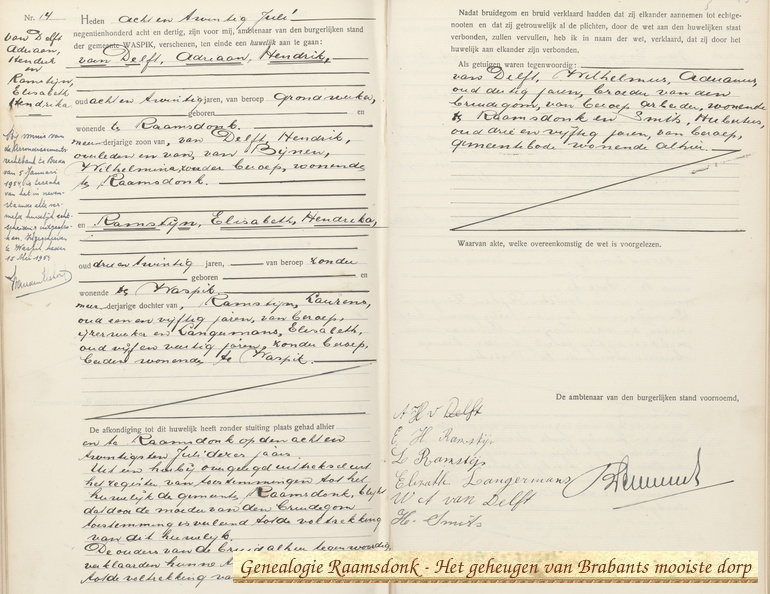 Nr. 14
van Delft
Adriaan,
Hendrik
en
Ramstijn,
Elisabeth
Hendrika.
van 5 Januari
1954
Waspik
18 Mei 1954
Heden acht en twintig Juli
negentienhonderd acht en dertig, zijn voor mij, ambtenaar van den burgerlijken stand
der gemeente WASPIK, verschenen, ten einde een huwelijk aan te gaan:
van Delft, Adriaan, Hendrik,
oud acht en twintig jaren, van beroep grondwerker,
geboren en
wonende te Raamsdonk.
meerderjarige zoon van, van Delft, Hendrik,
overleden en van, van Bijnen,
Wilhelmina, zonder beroep, wonende
te Raamsdonk.
en Ramstijn, Elisabeth, Hendrika,
oud drie en twintig jaren, van beroep zonder
geboren en
wonende te Waspik.
meerderjarige dochter van, Ramstijn, Laurens,
oud een en vijftig jaren, van beroep,
ijzerwerker en Langermans, Elisabeth,
oud vijf en veertig jaren, zonder beroep,
beiden wonende te Waspik.
De afkondiging tot dit huwelijk heeft zonder stuiting plaats gehad alhier
en te Raamsdonk op den achtien
twintigsten Juli dezer jaars.
Uit een hierbij overgelegd uittreksel uit
het register van toestemmingen tot het
huwelijk de gemeente Raamsdonk, blijkt
dat door de moeder van den bruidegom
toestemming is verleend tot de voltrekking
van dit huwelijk.
De ouders van de bruid alhier tegenwoordig
verklaarden hunne
tot de voltrekking van
Nadat bruidegom en bruid verklaard hadden dat zij elkander aannemen tot echtge-
nooten en dat zij getrouwelijk al de plichten, door de wet aan den huwelijken staat
verbonden, zullen vervullen, heb ik in naam der wet, verklaard, dat zij door het
huwelijk aan elkander zijn verbonden.
Als getuigen waren tegenwoordig:
van Delft, Wilhelmus, Adrianus,
oud dertig jaren, broeder van den
bruidegom, van beroep arbeider, wonende
te Raamsdonk en Smits, Hubertus,
oud drie en vijftig jaren, van beroep,
gemeentebode wonende alhier.
Waarvan akte, welke overeenkomstig de wet is voorgelezen.
De ambtenaar van den burgerlijken stand voornoemd,
A H v Delft
E H Ramstijn
L Ramstijn
Elisabeth Langermans
W A van Delft
H. Smits
Genealogie Raamsdonk - Het geheugen van Brabants mooiste dorp